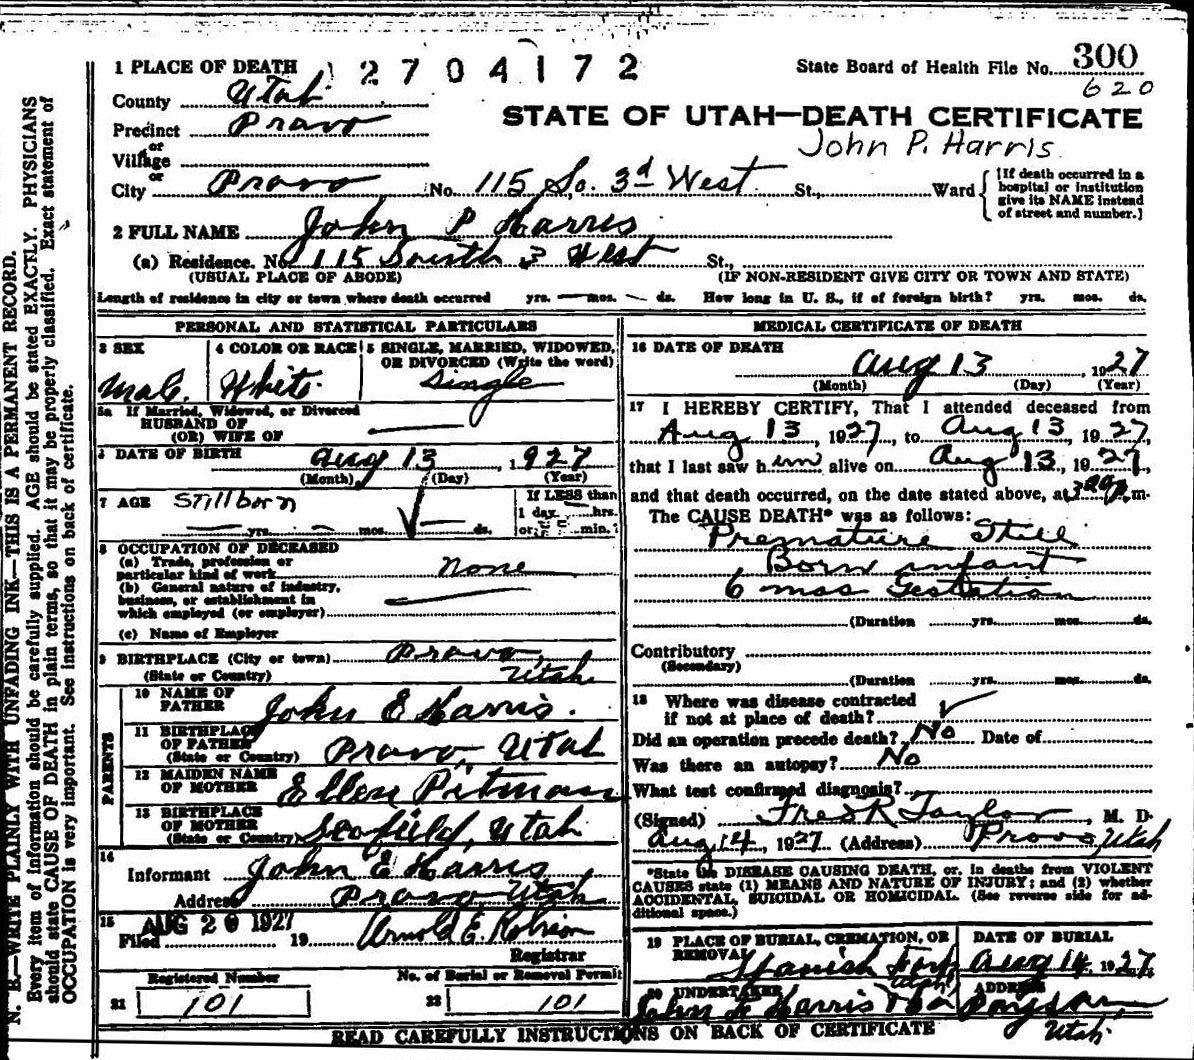 1 PLACE OF DEATH 2704172 State Board of Health File No. 300
620
County Utah
STATE OF UTAH—DEATH CERTIFICATE
Precinct Provo
John P. Harris
or
Village
or
City Provo No. 115 So. 3d West St., Ward
[If death occurred in a hospital or institution give its NAME instead of street and number.]
2 FULL NAME John P Harris
(a) Residence. No. 115 South 3 West St.,
(USUAL PLACE OF ABODE) (IF NON-RESIDENT GIVE CITY OR TOWN AND STATE)
Length of residence in city or town where death occurred yrs. — mos. — ds. How long in U. S., if of foreign birth? yrs. mos. ds.
PERSONAL AND STATISTICAL PARTICULARS
3 SEX
Male
4 COLOR OR RACE
White
5 SINGLE, MARRIED, WIDOWED, OR DIVORCED (Write the word)
Single
5a If Married, Widowed, or Divorced
HUSBAND OF
(OR) WIFE OF
6 DATE OF BIRTH Aug 13, 1927
(Month) (Day) (Year)
7 AGE Stillborn
yrs. mos. ds.
If LESS than
1 day hrs.
or min.
8 OCCUPATION OF DECEASED
(a) Trade, profession or
particular kind of work None
(b) General nature of industry,
business, or establishment in
which employed (or employer)
(c) Name of Employer
9 BIRTHPLACE (City or town) Provo,
(State or Country) Utah
PARENTS
10 NAME OF
FATHER John E Harris.
11 BIRTHPLACE
OF FATHER
(State or Country) Provo, Utah
12 MAIDEN NAME
OF MOTHER Ellen Pitman
13 BIRTHPLACE
OF MOTHER
(State or Country) Scofield, Utah
14
Informant John E Harris
Address Provo Utah
15 AUG 20 1927
Filed 19 Arnold E. Robison
Registrar
Registered Number
21 101
No. of Burial or Removal Permit
22 101
MEDICAL CERTIFICATE OF DEATH
16 DATE OF DEATH
Aug 13, 1927
(Month) (Day) (Year)
17 I HEREBY CERTIFY, That I attended deceased from
Aug 13, 1927, to Aug 13, 1927,
that I last saw him alive on Aug 13, 1927,
and that death occurred, on the date stated above, at m.
The CAUSE DEATH* was as follows:
Premature Still
Born infant
6 mos Gestation
(Duration yrs. mos. ds.
Contributory
(Secondary)
(Duration yrs. mos. ds.
18 Where was disease contracted
if not at place of death?
Did an operation precede death? No Date of
Was there an autopsy? No
What test confirmed diagnosis?
(Signed) Fred R Taylor, M. D.
Aug 14, 1927 (Address) Provo, Utah
*State the DISEASE CAUSING DEATH, or, in deaths from VIOLENT
CAUSES state (1) MEANS AND NATURE OF INJURY; and (2) whether
ACCIDENTAL, SUICIDAL OR HOMICIDAL. (See reverse side for ad-
ditional space.)
19 PLACE OF BURIAL, CREMATION, OR
REMOVAL
Spanish Fork
Utah
DATE OF BURIAL
Aug 14 1927
20 UNDERTAKER
John Harris
ADDRESS
Payson,
Utah
READ CAREFULLY INSTRUCTIONS ON BACK OF CERTIFICATE
N. B.—WRITE PLAINLY WITH UNFADING INK—THIS IS A PERMANENT RECORD.
Every item of information should be carefully supplied. AGE should be stated EXACTLY. PHYSICIANS
should state CAUSE OF DEATH in plain terms, so that it may be properly classified. Exact statement of
OCCUPATION is very important. See instructions on back of certificate.